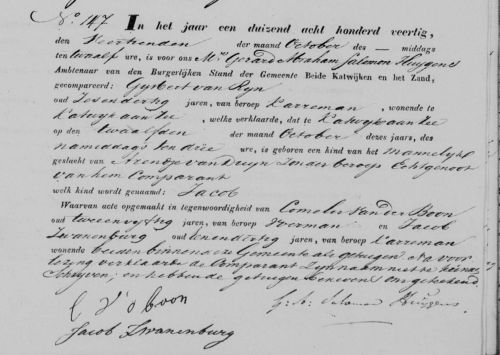 No. 147 In het jaar een duizend acht honderd veertig,
den Veertienden der maand October des — middags
ten twaalf ure, is voor ons Mr. Gerard Abraham Salomon Huygens
Ambtenaar van den Burgerlijken Stand der Gemeente Beide Katwijken en het Zand,
gecompareerd: Gysbert van Ryn
oud Zesendertig jaren, van beroep Karreman, wonende te
Katwijk aan Zee, welke verklaarde, dat te Katwijk aan Zee
op den twaalfden der maand October dezes jaars, des
namiddags ten drie ure, is geboren een kind van het Mannelijk
geslacht van Arentje van Duijn Zonder beroep Echtgenoot
van hem Comparant
welk kind wordt genaamd: Jacob
Waarvan acte opgemaakt in tegenwoordigheid van Cornelis van der Boon
oud tweeenvyftig jaren, van beroep en Jacob
Zwanenburg oud jaren, van beroep Karreman
wonende beiden binnen deze Gemeente als getuigen. Na voor
lezing verklaarde de Comparant Zyn naam niet te kunnen
Schryven; en hebben de getuigen benevens ons geteekend
C v d Boon
G. A. Salomon Huygens.
Jacob Zwanenburg